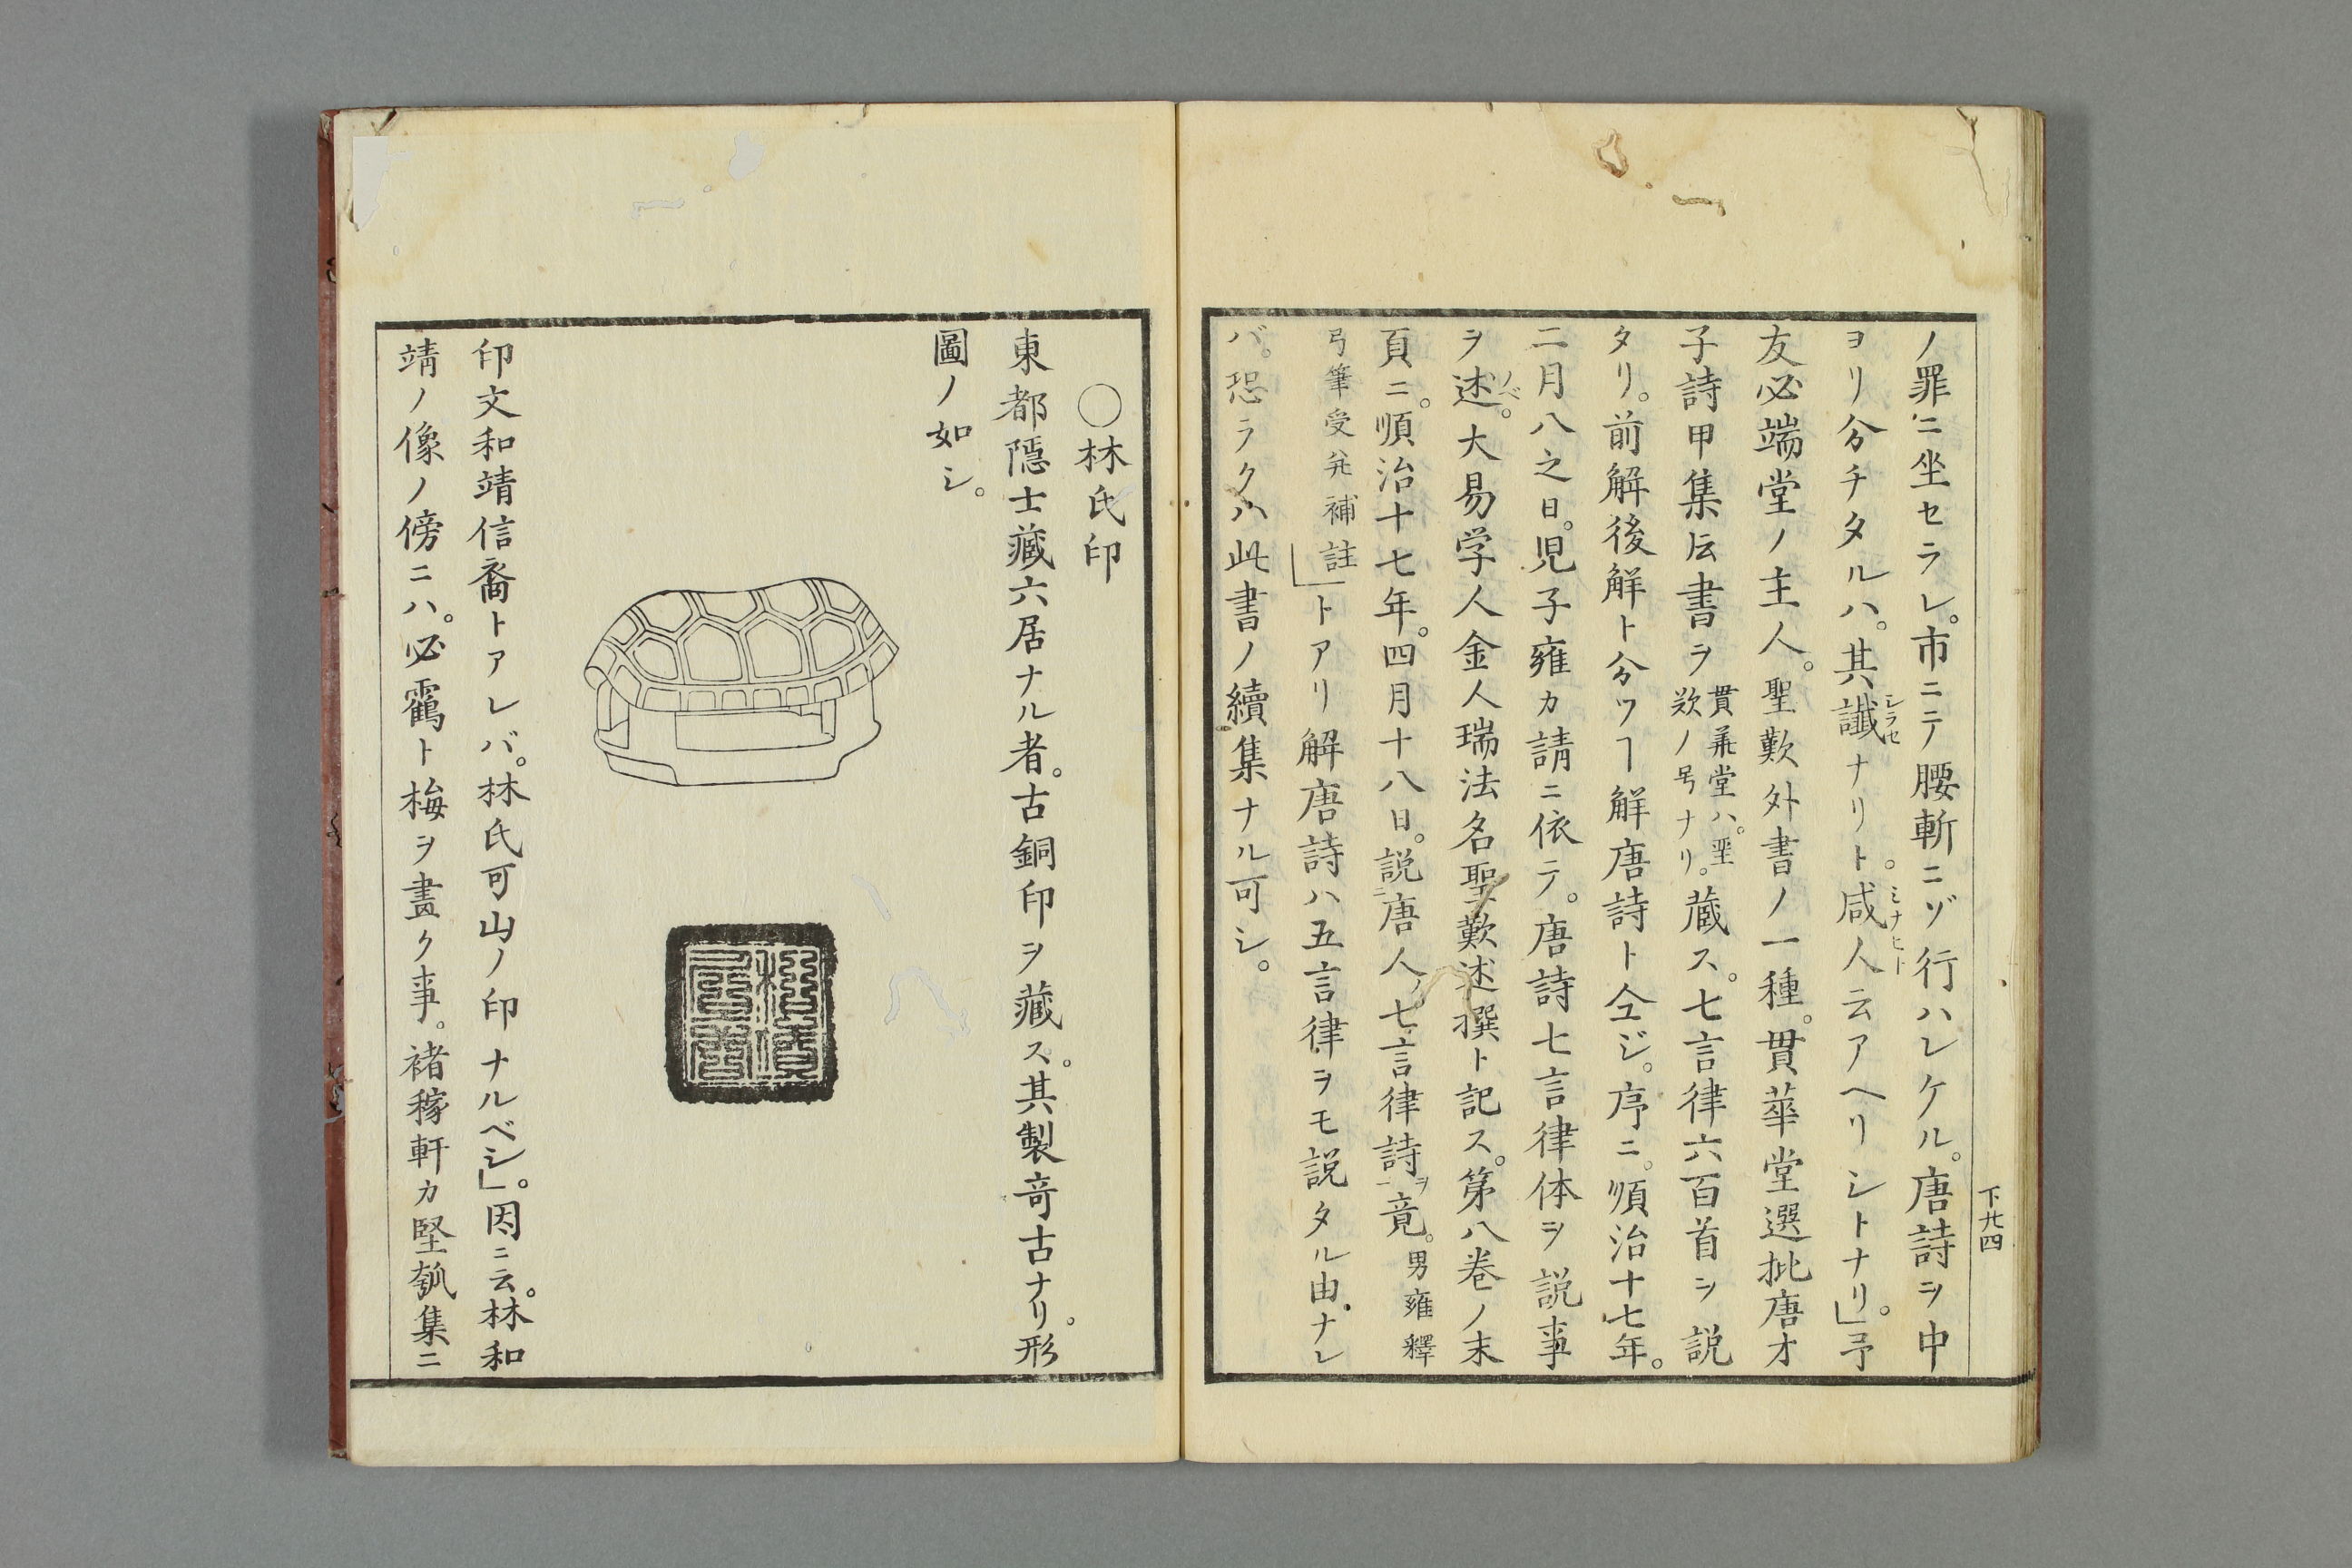 下廿四
ノ罪ニ坐セラレ。市ニテ腰斬ニゾ行ハレケル。唐詩ヲ中
ヨリ分チタルハ。其讖ナリト。咸人云アヘリシトナリ」。予
シラセ
ミナヒト
友必端堂ノ主人。聖歎外書ノ一種。貫華堂選批唐才
子詩甲集ト云書ヲ
貫華堂ハ。聖
歎ノ号ナリ。
蔵ス。七言律六百首ヲ説
タリ。前解後解ト分ツヿ解唐詩ト仝ジ。序ニ。順治十七年。
二月八之日。児子雍カ請ニ依テ。唐詩七言律体ヲ説事
ヲ述。大易学人金人瑞法名聖歎述撰ト記ス。第八巻ノ末
ノベ
頁ニ。順治十七年。四月十八日。説唐人七言律詩ヲ竟。
男雍釋
弓筆受并補註
」トアリ解唐詩ハ五言律ヲモ説タル由ナレ
バ。恐ラクハ此書ノ續集ナル可シ。
○林氏印
東都隱士藏六居ナル者。古銅印ヲ藏ス。其製奇古ナリ。形
圖ノ如シ。
印文和靖信裔トアレバ。林氏可山ノ印ナルベシ」。因ニ云。林和
靖ノ像ノ傍ニハ。必靏ト梅ヲ畫ク事。褚稼軒カ堅瓠集ニ